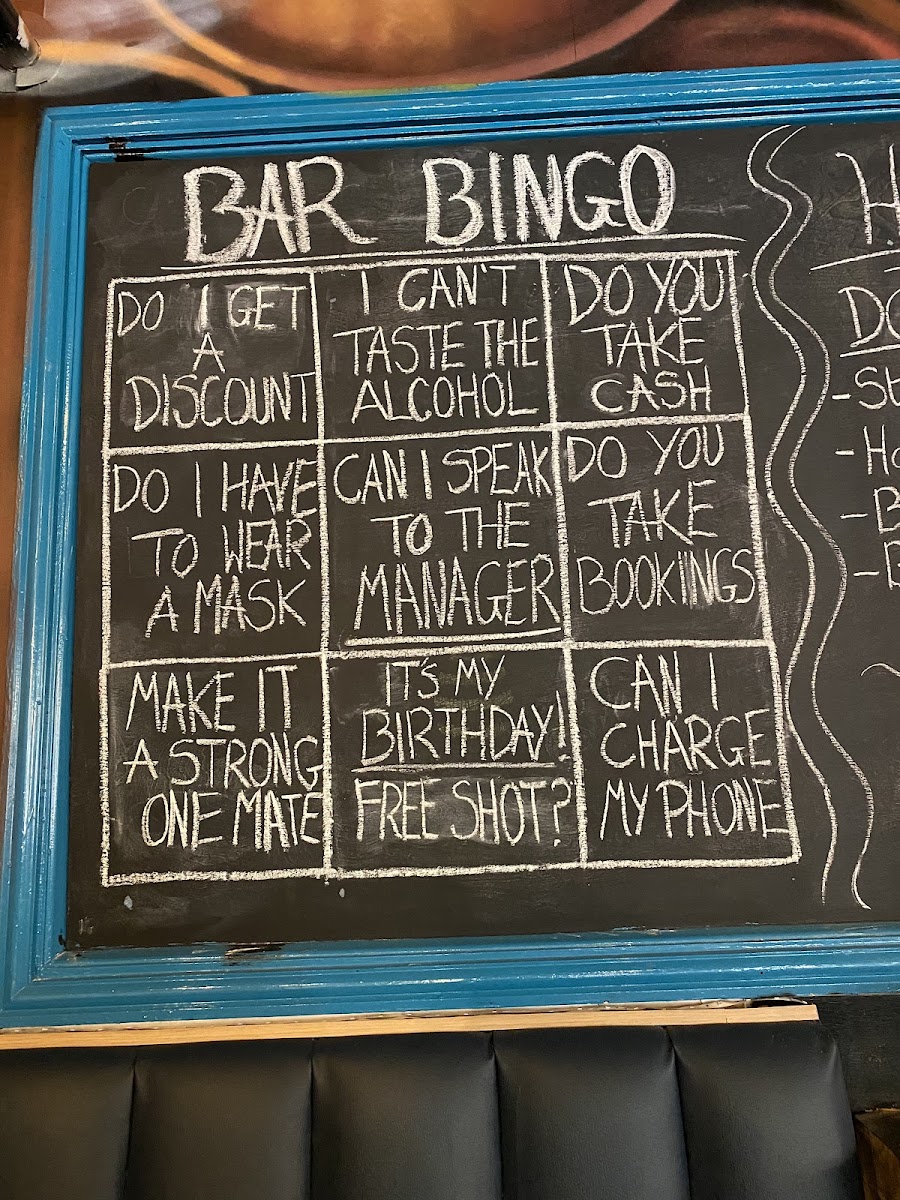 BAR BINGO
DO I GET
A
DISCOUNT
I CAN'T
TASTE THE
ALCOHOL
DO YOU
TAKE
CASH
DO I HAVE
TO WEAR
A MASK
CAN I SPEAK
TO THE
MANAGER
DO YOU
TAKE
BOOKINGS
MAKE IT
A STRONG
ONE MATE
IT'S MY
BIRTHDAY!
FREE SHOT?
CAN I
CHARGE
MY PHONE